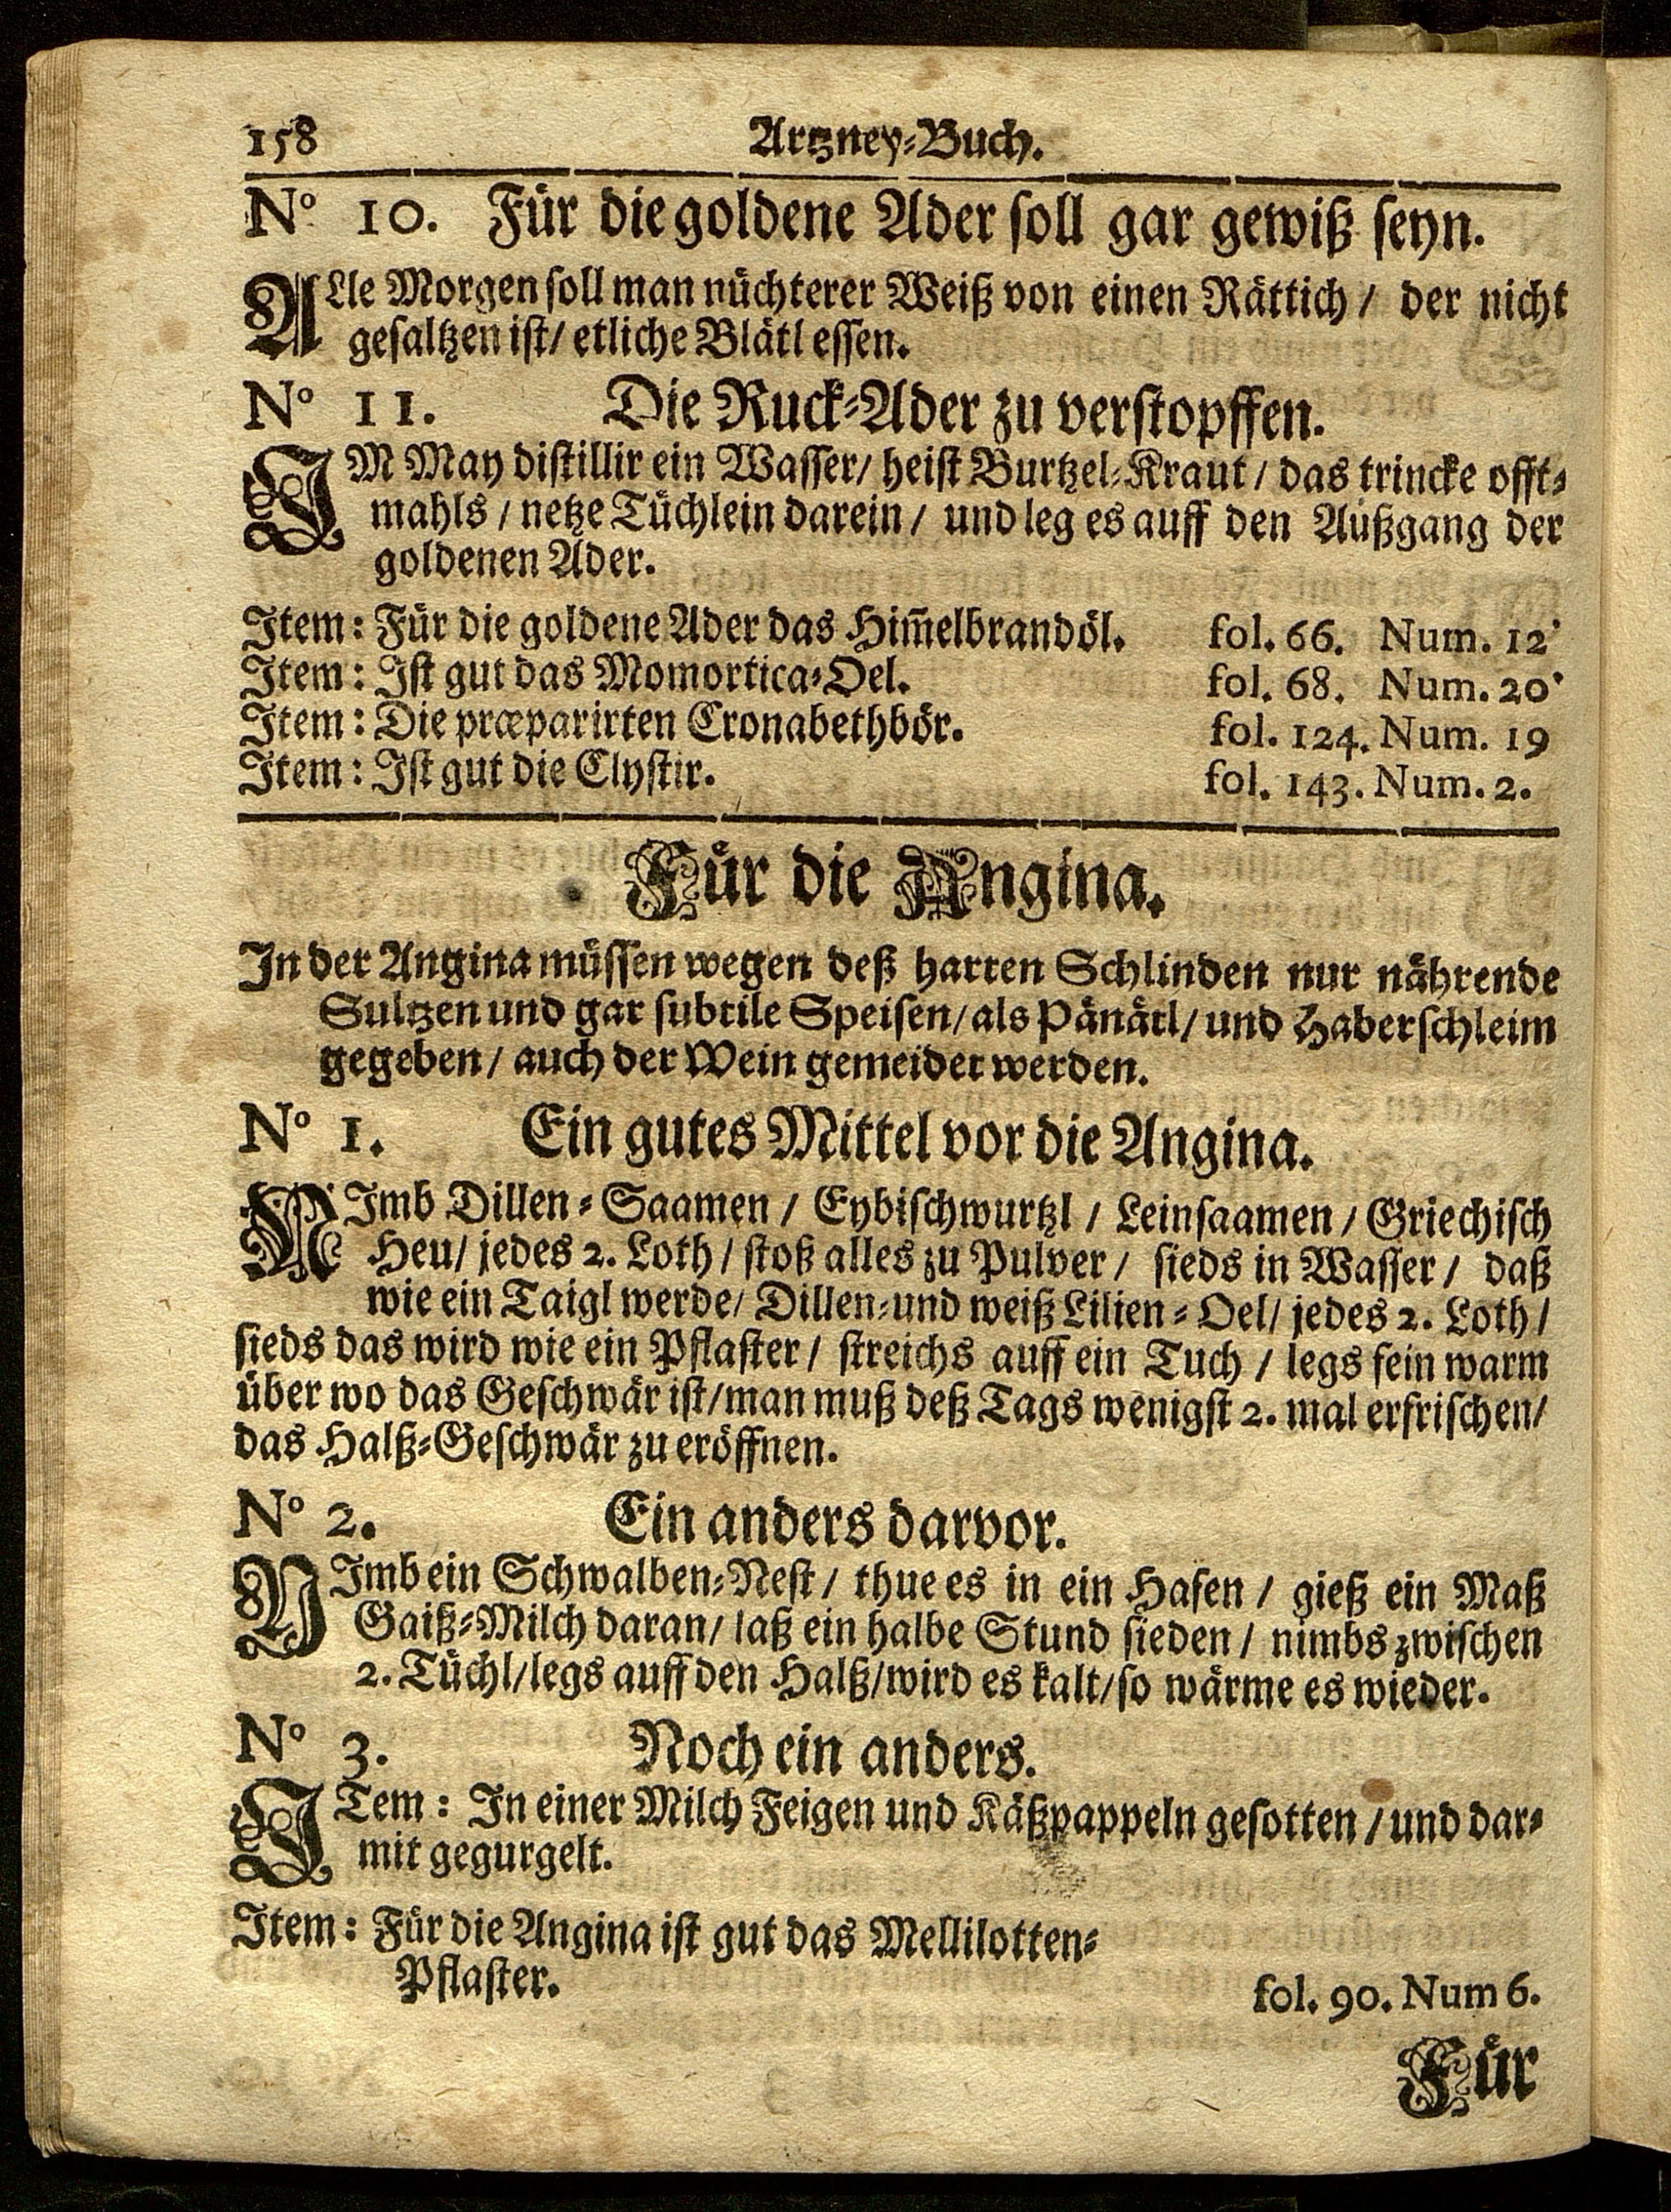 158 Artzney-Buch.
No 10. Für die goldene Ader soll gar gewiß seyn.
ALle Morgen soll man nüchterer Weiß von einen Rättich / der nicht
gesaltzen ist / etliche Blätl essen.
No 11. Die Ruck-Ader zu verstopffen.
IM May distillir ein Wasser / heist Burtzel-Kraut / das trincke offt-
mahls / netze Tüchlein darein / und leg es auff den Außgang der
goldenen Ader.
Item: Für die goldene Ader das Him̃elbrandöl. fol. 66. Num. 12.
Item: Ist gut das Momortica-Oel. fol. 68. Num. 20.
Item: Die præparirten Cronabethbör. fol. 124. Num. 19
Item: Ist gut die Clystir. fol. 143. Num. 2.
Für die Angina.
In der Angina müssen wegen deß harten Schlinden nur nährende
Sultzen und gar subtile Speisen / als Pänätl / und Haberschleim
gegeben / auch der Wein gemeidet werden.
No 1. Ein gutes Mittel vor die Angina.
NImb Dillen-Saamen / Eybischwurtzl / Leinsaamen / Griechisch
Heu / jedes 2. Loth / stoß alles zu Pulver / sieds in Wasser / daß
wie ein Taigl werde / Dillen-und weiß Lilien-Oel / jedes 2. Loth /
sieds das wird wie ein Pflaster / streichs auff ein Tuch / legs fein warm
über wo das Geschwär ist / man muß deß Tags wenigst 2. mal erfrischen /
das Halß-Geschwär zu eröffnen.
No 2. Ein anders darvor.
NImb ein Schwalben-Nest / thue es in ein Hafen / gieß ein Maß
Gaiß-Milch daran / laß ein halbe Stund sieden / nimbs zwischen
2. Tüchl / legs auff den Halß / wird es kalt / so wärme es wieder.
No 3. Noch ein anders.
ITem: In einer Milch Feigen und Käßpappeln gesotten / und dar-
mit gegurgelt.
Item: Für die Angina ist gut das Mellilotten-
Pflaster. fol. 90. Num 6.
Für